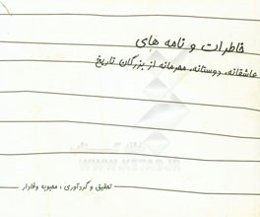 خاطرات و نامه های
عاشقانه، دوستانه، محرمانه از بزرگان تاریخ
WWW.KETAB.IR
تحقیق و گردآوری : محبوبه وفادار